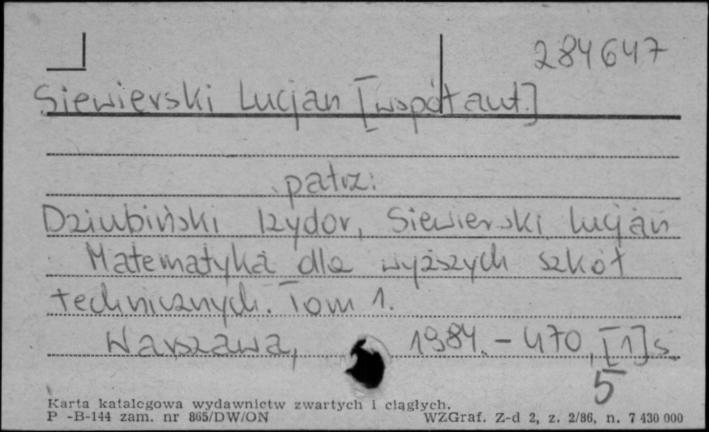 284647
Siewierski Lucjan [współaut.]
patrz:
Dziubiński Izydor, Siewierski Lucjan
Matematyka dla wyższych szkół
technicznych. Tom 1.
Warszawa, 1984. - 470, [1] s.
5
Karta katalogowa wydawnictw zwartych i ciągłych.
P -B-144 zam. nr 865/DW/ON WZGraf. Z-d 2, z. 2/86, n. 7 430 000